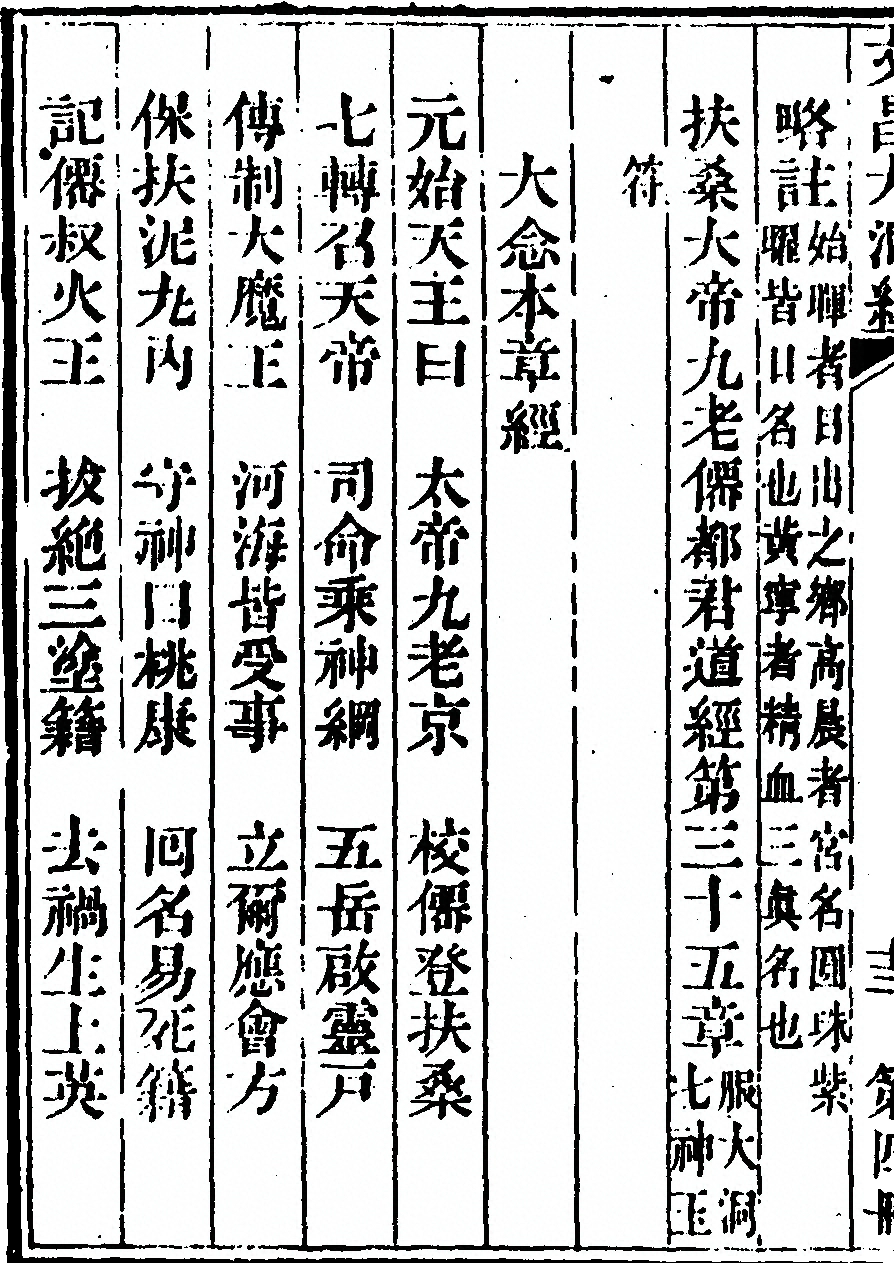 文昌大洞經 十三 第四冊
略註始暉者日出之鄉高晨者宮名圓珠紫
曜皆日名也黃寧者精血三眞名也
扶桑大帝九老僊都君道經第三十五章服大洞
七神玉
符
大念本章經
元始天王曰 太帝九老京 校僊登扶桑
七轉召天帝 司命乘神綱 五岳啟靈戸
傳制大魔王 河海皆受事 立爾應會方
保扶泥丸內 守神曰桃康 囘名易死籍
記僊叔火王 拔絶三塗籍 去禍生上英